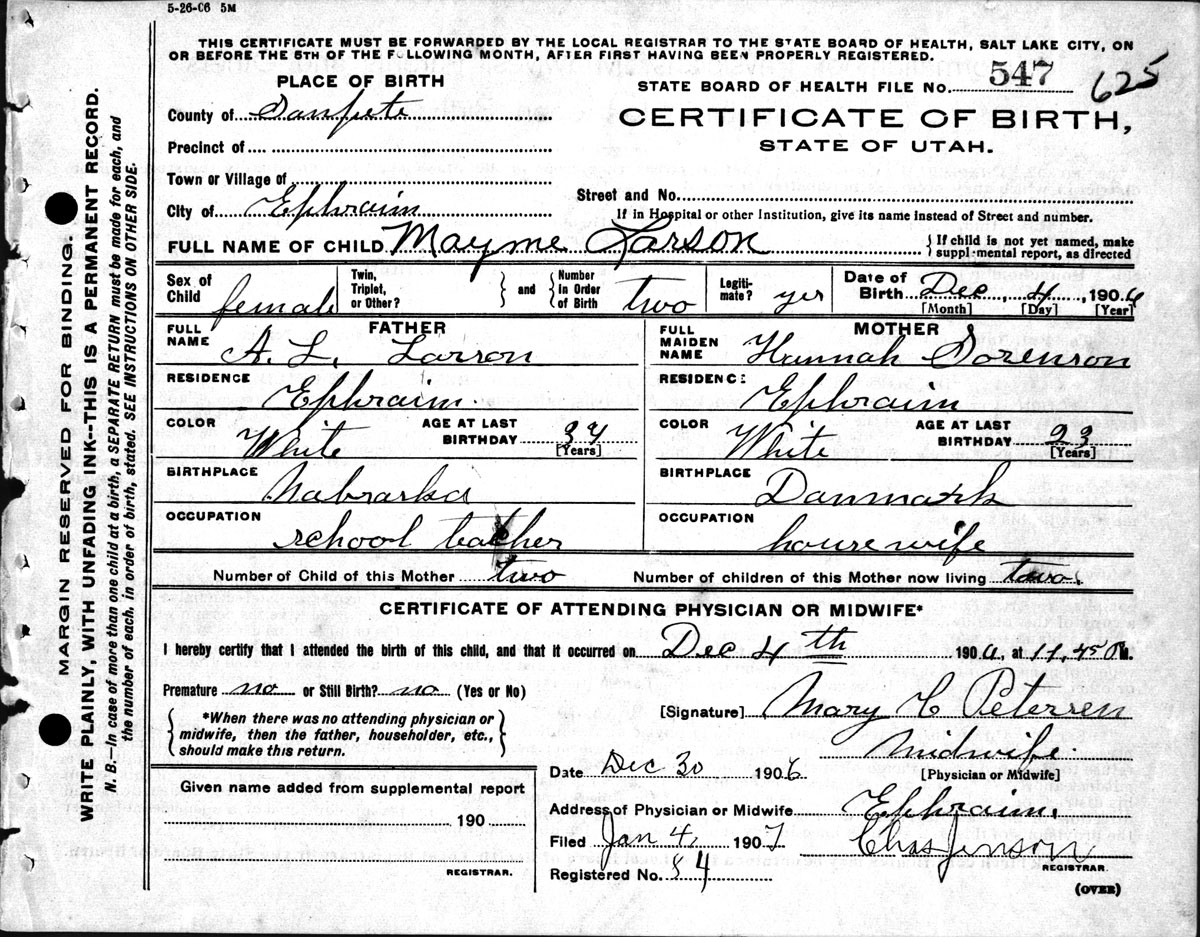 5-26-06 5M
THIS CERTIFICATE MUST BE FORWARDED BY THE LOCAL REGISTRAR TO THE STATE BOARD OF HEALTH, SALT LAKE CITY, ON
OR BEFORE THE 5TH OF THE FOLLOWING MONTH, AFTER FIRST HAVING BEEN PROPERLY REGISTERED.
PLACE OF BIRTH
STATE BOARD OF HEALTH FILE NO. 547 625
County of Sanpete
CERTIFICATE OF BIRTH,
STATE OF UTAH.
Precinct of
Town or Village of
Street and No.
City of Ephraim
If in Hospital or other Institution, give its name instead of Street and number.
FULL NAME OF CHILD Mayme Larson
If child is not yet named, make
supplemental report, as directed
Sex of Child female
Twin, Triplet, or Other?
and
Number in Order of Birth two
Legitimate? yes
Date of Birth Dec, 4, 1906
[Month] [Day] [Year]
FATHER
FULL NAME A. L. Larson
RESIDENCE Ephraim.
COLOR White AGE AT LAST BIRTHDAY 34
[Years]
BIRTHPLACE Nabraska
OCCUPATION school teacher
MOTHER
FULL MAIDEN NAME Hannah Sorenson
RESIDENCE Ephraim
COLOR White AGE AT LAST BIRTHDAY 23
[Years]
BIRTHPLACE Danmark
OCCUPATION housewife
Number of Child of this Mother two Number of children of this Mother now living two.
CERTIFICATE OF ATTENDING PHYSICIAN OR MIDWIFE*
I hereby certify that I attended the birth of this child, and that it occurred on Dec 4th 1906, at 11.45 M.
Premature no or Still Birth? no (Yes or No)
[Signature] Mary C Petersen
*When there was no attending physician or
midwife, then the father, householder, etc.,
should make this return.
Midwife.
[Physician or Midwife]
Date Dec 30 1906
Given name added from supplemental report
190
REGISTRAR.
Address of Physician or Midwife Ephraim.
Filed Jan 4, 1907 Chas Jenson
REGISTRAR.
Registered No. 84
(OVER)
MARGIN RESERVED FOR BINDING.
WRITE PLAINLY, WITH UNFADING INK--THIS IS A PERMANENT RECORD.
N. B.—In case of more than one child at a birth, a SEPARATE RETURN must be made for each, and
the number of each, in order of birth, stated. SEE INSTRUCTIONS ON OTHER SIDE.